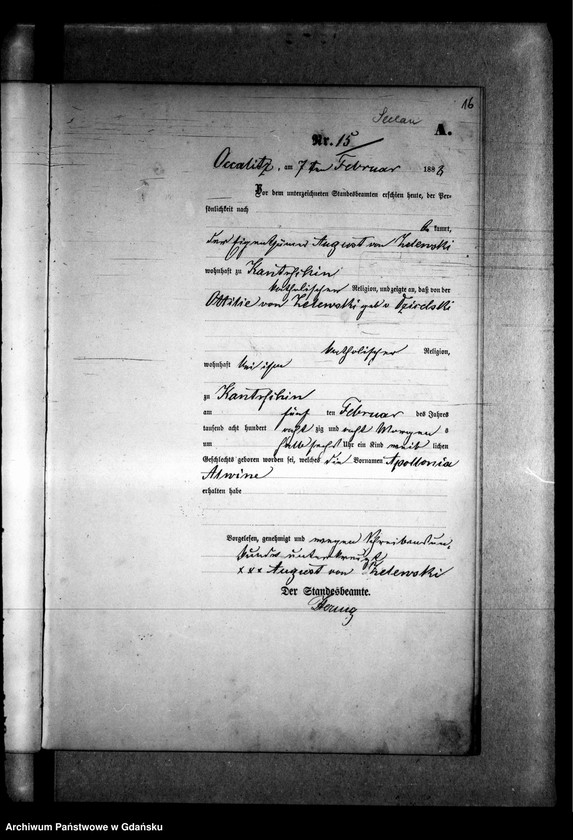 16
A.
Nr. 15
Occalitz, am 7ten Februar 188
Vor dem unterzeichneten Standesbeamten erschien heute, der Per-
sönlichkeit nach
be kannt,
der Eigenthümer August von Zelewski
wohnhaft zu Kantrschin
katholischer Religion, und zeigte an, daß von der
Ottilie von Zelewski geb v.
katholischer Religion,
wohnhaft bei ihm
zu Kantrschin
am fünf ten Februar des Jahres
tausend acht hundert acht zig und acht Morgen s
um halb sechs Uhr ein Kind weib lichen
Geschlechts geboren worden sei, welches die Vornamen Apollonia
Alwine
erhalten habe
Vorgelesen, genehmigt und wegen Schreibensun-
kunde unterkreuzt
x x x August von Zelewski
Der Standesbeamte.
Archiwum Państwowe w Gdańsku